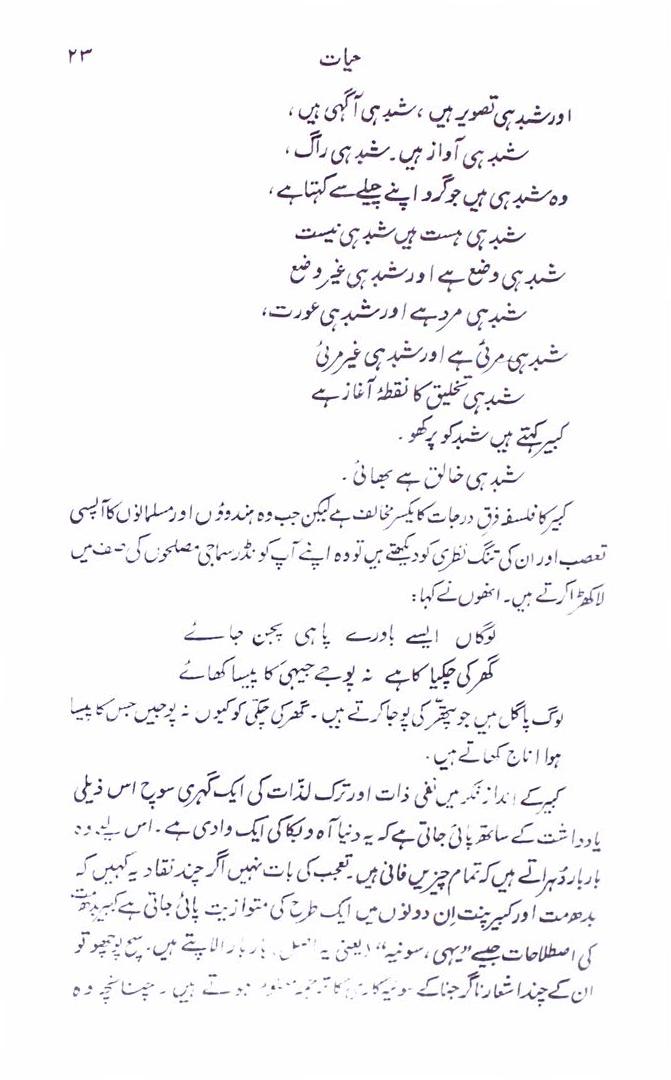 حیات ۲۳
اور شبد ہی تصویر ہیں، شبد ہی آگہی ہیں،
شبد ہی آواز ہیں۔ شبد ہی راگ،
وہ شبد ہی ہیں جو گرو اپنے چیلے سے کہتا ہے،
شبد ہی ہست ہیں شبد ہی نیست
شبد ہی وضع ہے اور شبد ہی غیر وضع
شبد ہی مرد ہے اور شبد ہی عورت،
شبد ہی مرئی ہے اور شبد ہی غیر مرئی
شبد ہی تخلیق کا نقطۂ آغاز ہے
کبیر کہتے ہیں شبد کو پرکھو۔
شبد ہی خالق ہے بھائی۔
کبیر کا فلسفہ فرقِ درجات کا یکسر مخالف ہے لیکن جب وہ ہندوؤں اور مسلمانوں کا آپسی
تعصب اور ان کی تنگ نظری کو دیکھتے ہیں تو وہ اپنے آپ کو نڈر سماجی مصلحوں کی صف میں
لا کھڑا کرتے ہیں۔ انھوں نے کہا:
لوگاں ایسے باورے پاہی پجن جائے
گھر کی چکیا کاہے نہ پوجے جیہی کا پیسا کھائے
لوگ پاگل ہیں جو پتھر کی پوجا کرتے ہیں۔ گھر کی چکی کو کیوں نہ پوجیں جس کا پیسا
ہوا اناج کھاتے ہیں۔
کبیر کے اندازِ فکر میں نفی ذات اور ترک لذّات کی ایک گہری سوچ اس ذیلی
یادداشت کے ساتھ پائی جاتی ہے کہ یہ دنیا آہ و بکا کی ایک وادی ہے۔ اس لیے وہ
بار بار دُہراتے ہیں کہ تمام چیزیں فانی ہیں۔ تعجب کی بات نہیں اگر چند نقاد یہ کہیں کہ
بدھ مت اور کبیر پنت اِن دونوں میں ایک طرح کی متوازیت پائی جاتی ہے کبیر بدھ مت
کی اصطلاحات جیسے ”یہی، سونیہ“ (یعنی یہ اصل، بار بار الاپتے ہیں۔ سچ پوچھو تو
ان کے چند اشعار ناگرجنا کے کا ترجمہ معلوم ہوتے ہیں۔ چنانچہ وہ